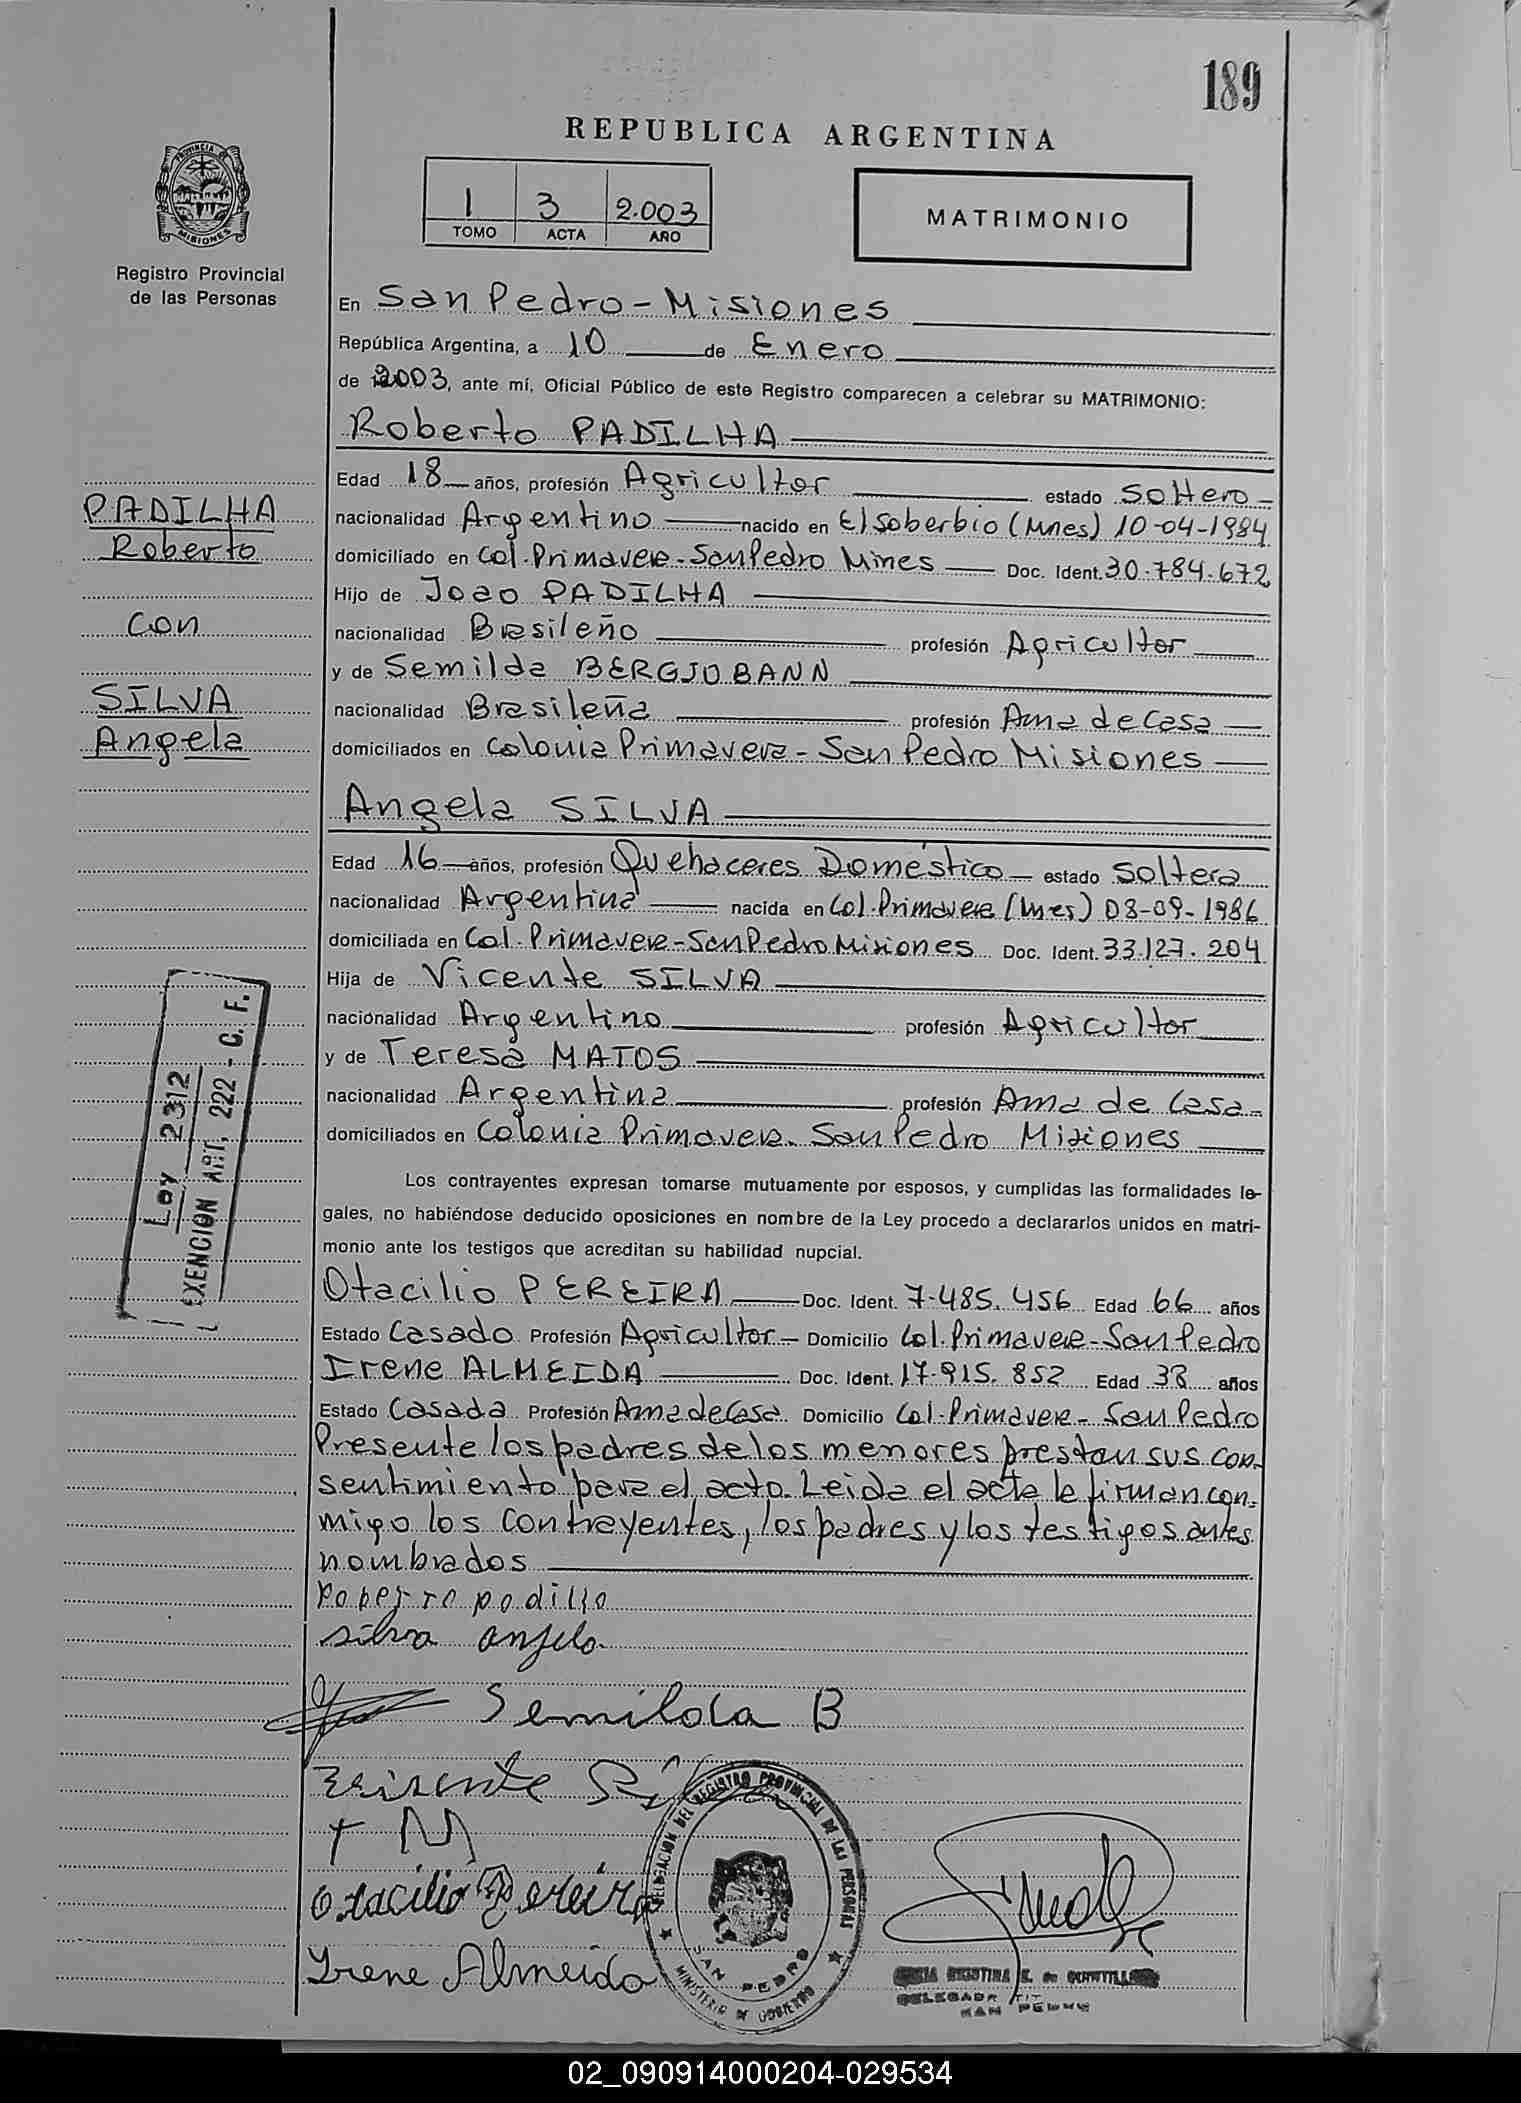 189
REPUBLICA ARGENTINA
1 3 2.003
TOMO ACTA AÑO
MATRIMONIO
PROVINCIA DE MISIONES
Registro Provincial
de las Personas
En San Pedro - Misiones
República Argentina, a 10 de Enero
de 2003, ante mí, Oficial Público de este Registro comparecen a celebrar su MATRIMONIO:
Roberto PADILHA
Edad 18 años, profesión Agricultor estado Soltero
PADILHA
Roberto
con
SILVA
Angela
nacionalidad Argentino nacido en El Soberbio (Mnes) 10-04-1984
domiciliado en Col. Primavera - San Pedro Mines Doc. Ident. 30.784.672
Hijo de Joao PADILHA
nacionalidad Brasileño profesión Agricultor
y de Semilda BERGJOBANN
nacionalidad Brasileña profesión Ama de Casa
domiciliados en Colonia Primavera - San Pedro Misiones
Angela SILVA
Edad 16 años, profesión Quehaceres Doméstico estado Soltera
nacionalidad Argentina nacida en Col. Primavera (Mnes) 03-09-1986
domiciliada en Col. Primavera - San Pedro Misiones Doc. Ident. 33.127.204
Hija de Vicente SILVA
nacionalidad Argentino profesión Agricultor
y de Teresa MATOS
nacionalidad Argentina profesión Ama de Casa
domiciliados en Colonia Primavera - San Pedro Misiones
Ley 2312
EXENCION ART. 222 - C. F.
Los contrayentes expresan tomarse mutuamente por esposos, y cumplidas las formalidades le-
gales, no habiéndose deducido oposiciones en nombre de la Ley procedo a declararlos unidos en matri-
monio ante los testigos que acreditan su habilidad nupcial.
Otacilio PEREIRA Doc. Ident. 7.485.456 Edad 66 años
Estado Casado Profesión Agricultor Domicilio Col. Primavera - San Pedro
Irene ALMEIDA Doc. Ident. 17.915.852 Edad 38 años
Estado Casada Profesión Ama de Casa Domicilio Col. Primavera - San Pedro
Presente los padres de los menores prestan sus con-
sentimiento para el acto. Leida el acta le firman con-
migo los contrayentes, los padres y los testigos antes
nombrados
Roberto padilla
silva angela
Semilda B
T M
Otacilio Pereira
Irene Almeida
DELEGACION DEL REGISTRO PROVINCIAL DE LAS PERSONAS
SAN PEDRO
MINISTERIO DE GOBIERNO
DELEGADA TIT
SAN PEDRO
02_090914000204-029534